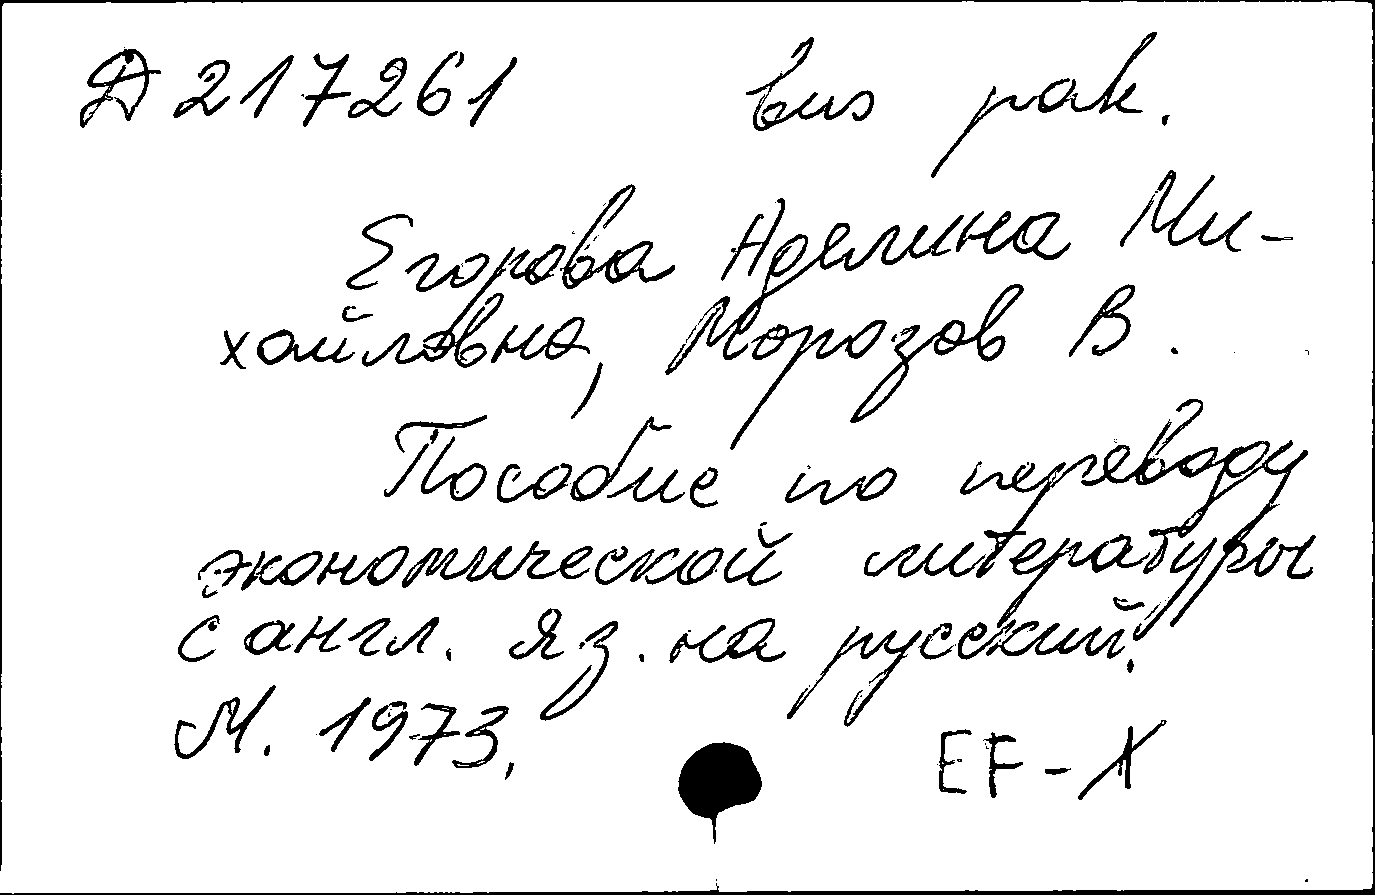 Д 217261 виз рак.
Егорова Аделина Ми-
хайловна, Морозов В.
Пособие по переводу
экономической литературы
с англ. яз. на русский.
М. 1973,
EF-X